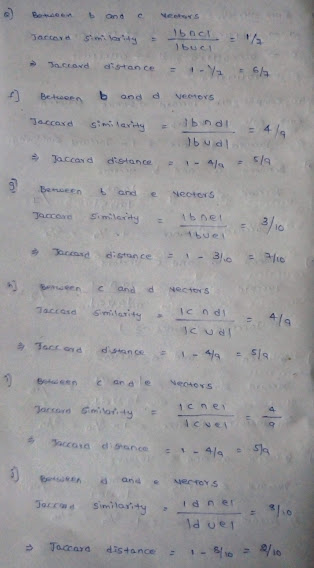 e) Between b and c vectors
Jaccard Similarity = |b∩c| / |b∪c| = 1/2
⇒ Jaccard distance = 1 - 1/2 = 6/7
f) Between b and d vectors
Jaccard Similarity = |b∩d| / |b∪d| = 4/9
⇒ Jaccard distance = 1 - 4/9 = 5/9
g) Between b and e vectors
Jaccard Similarity = |b∩e| / |b∪e| = 3/10
⇒ Jaccard distance = 1 - 3/10 = 7/10
h) Between c and d vectors
Jaccard Similarity = |c∩d| / |c∪d| = 4/9
⇒ Jaccard distance = 1 - 4/9 = 5/9
i) Between c and e vectors
Jaccard Similarity = |c∩e| / |c∪e| = 4/9
⇒ Jaccard distance = 1 - 4/9 = 5/9
j) Between d and e vectors
Jaccard Similarity = |d∩e| / |d∪e| = 8/10
⇒ Jaccard distance = 1 - 8/10 = 2/10